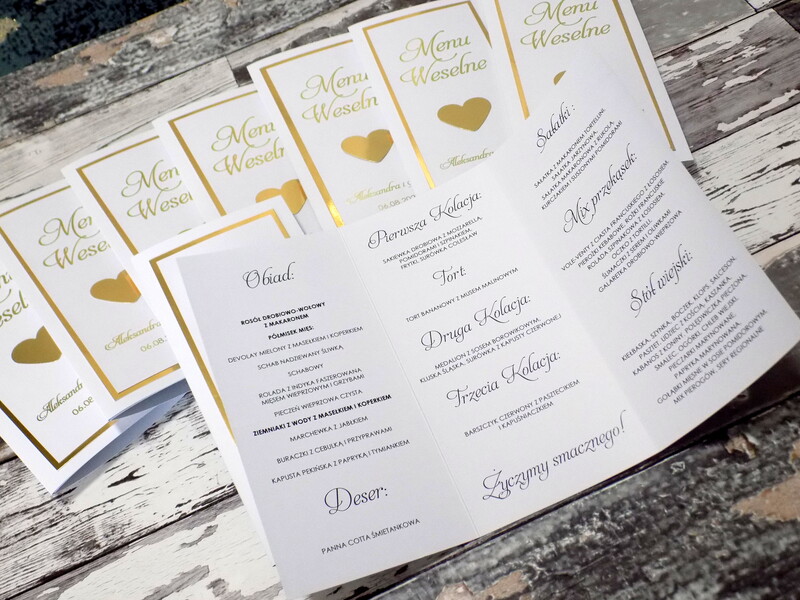 Menu
Weselne
Menu
Weselne
Aleksandra
Menu
Weselne
Aleksandra
06.08.
Menu
Weselne
Menu
Weselne
Menu
Weselne
Aleksandra
06.08.
Menu
Weselne
Aleksandra
06.08
Obiad:
ROSÓŁ DROBIOWO-WOŁOWY
Z MAKARONEM
PÓŁMISEK MIĘS:
DEVOLAY MIELONY Z MASEŁKIEM I KOPERKIEM
SCHAB NADZIEWANY ŚLIWKĄ,
SCHABOWY
ROLADA Z INDYKA FASZEROWANA
MIĘSEM WIEPRZOWYM I GRZYBAMI
PIECZEŃ WIEPRZOWA CZYSTA
ZIEMNIAKI Z WODY Z MASEŁKIEM I KOPERKIEM
MARCHEWKA Z JABŁKIEM
BURACZKI Z CEBULKĄ I PRZYPRAWAMI
KAPUSTA PEKIŃSKA Z PAPRYKĄ I TYMIANKIEM
Deser:
PANNA COTTA ŚMIETANKOWA
Pierwsza Kolacja:
SAKIEWKA DROBIOWA Z MOZZARELLĄ,
POMIDORAMI I SZPINAKIEM,
FRYTKI, SURÓWKA COLESŁAW
Tort:
TORT BANANOWY Z MUSEM MALINOWYM
Druga Kolacja:
MEDALION Z SOSEM BOROWIKOWYM,
KLUSKA ŚLĄSKA, SURÓWKA Z KAPUSTY CZERWONEJ
Trzecia Kolacja:
BARSZCZYK CZERWONY Z PASZTECIKIEM
I KAPUŚNIACZKIEM
Życzymy smacznego!
Sałatki:
SAŁATKA Z MAKARONEM TORTELLINI
SAŁATKA JARZYNOWA,
SAŁATKA MAKARONOWA Z RUKOLĄ,
KURCZAKIEM I SUSZONYMI POMIDORAMI
Mix przekąsek:
VOLE-VENTY Z CIASTA FRANCUSKIEGO Z ŁOSOSIEM,
PIEROŻKI KEBABOWE, ROŻKI FRANCUSKIE
ROLADA SZPINAKOWA Z ŁOSOSIEM,
OCZKO Z TORTILLI,
ŚLIMACZKI Z SEREM I OLIWKAMI
GALARETKA DROBIOWO-WIEPRZOWA
Stół wiejski:
KIEŁBASKA, SZYNKA, BOCZEK, KLOPS, SALCESON,
PASZTET, UDZIEC Z KOŚCIĄ, KASZANKA,
KABANOS Z KONINY, POLĘDWICZKA PIECZONA,
SMALEC, OGÓRKI, CHLEB WIEJSKI,
PIECZARKI MARYNOWANE,
PAPRYKA MARYNOWANA,
GOŁĄBKI MIĘSNE W SOSIE POMIDOROWYM,
MIX PIEROGÓW, SERY REGIONALNE